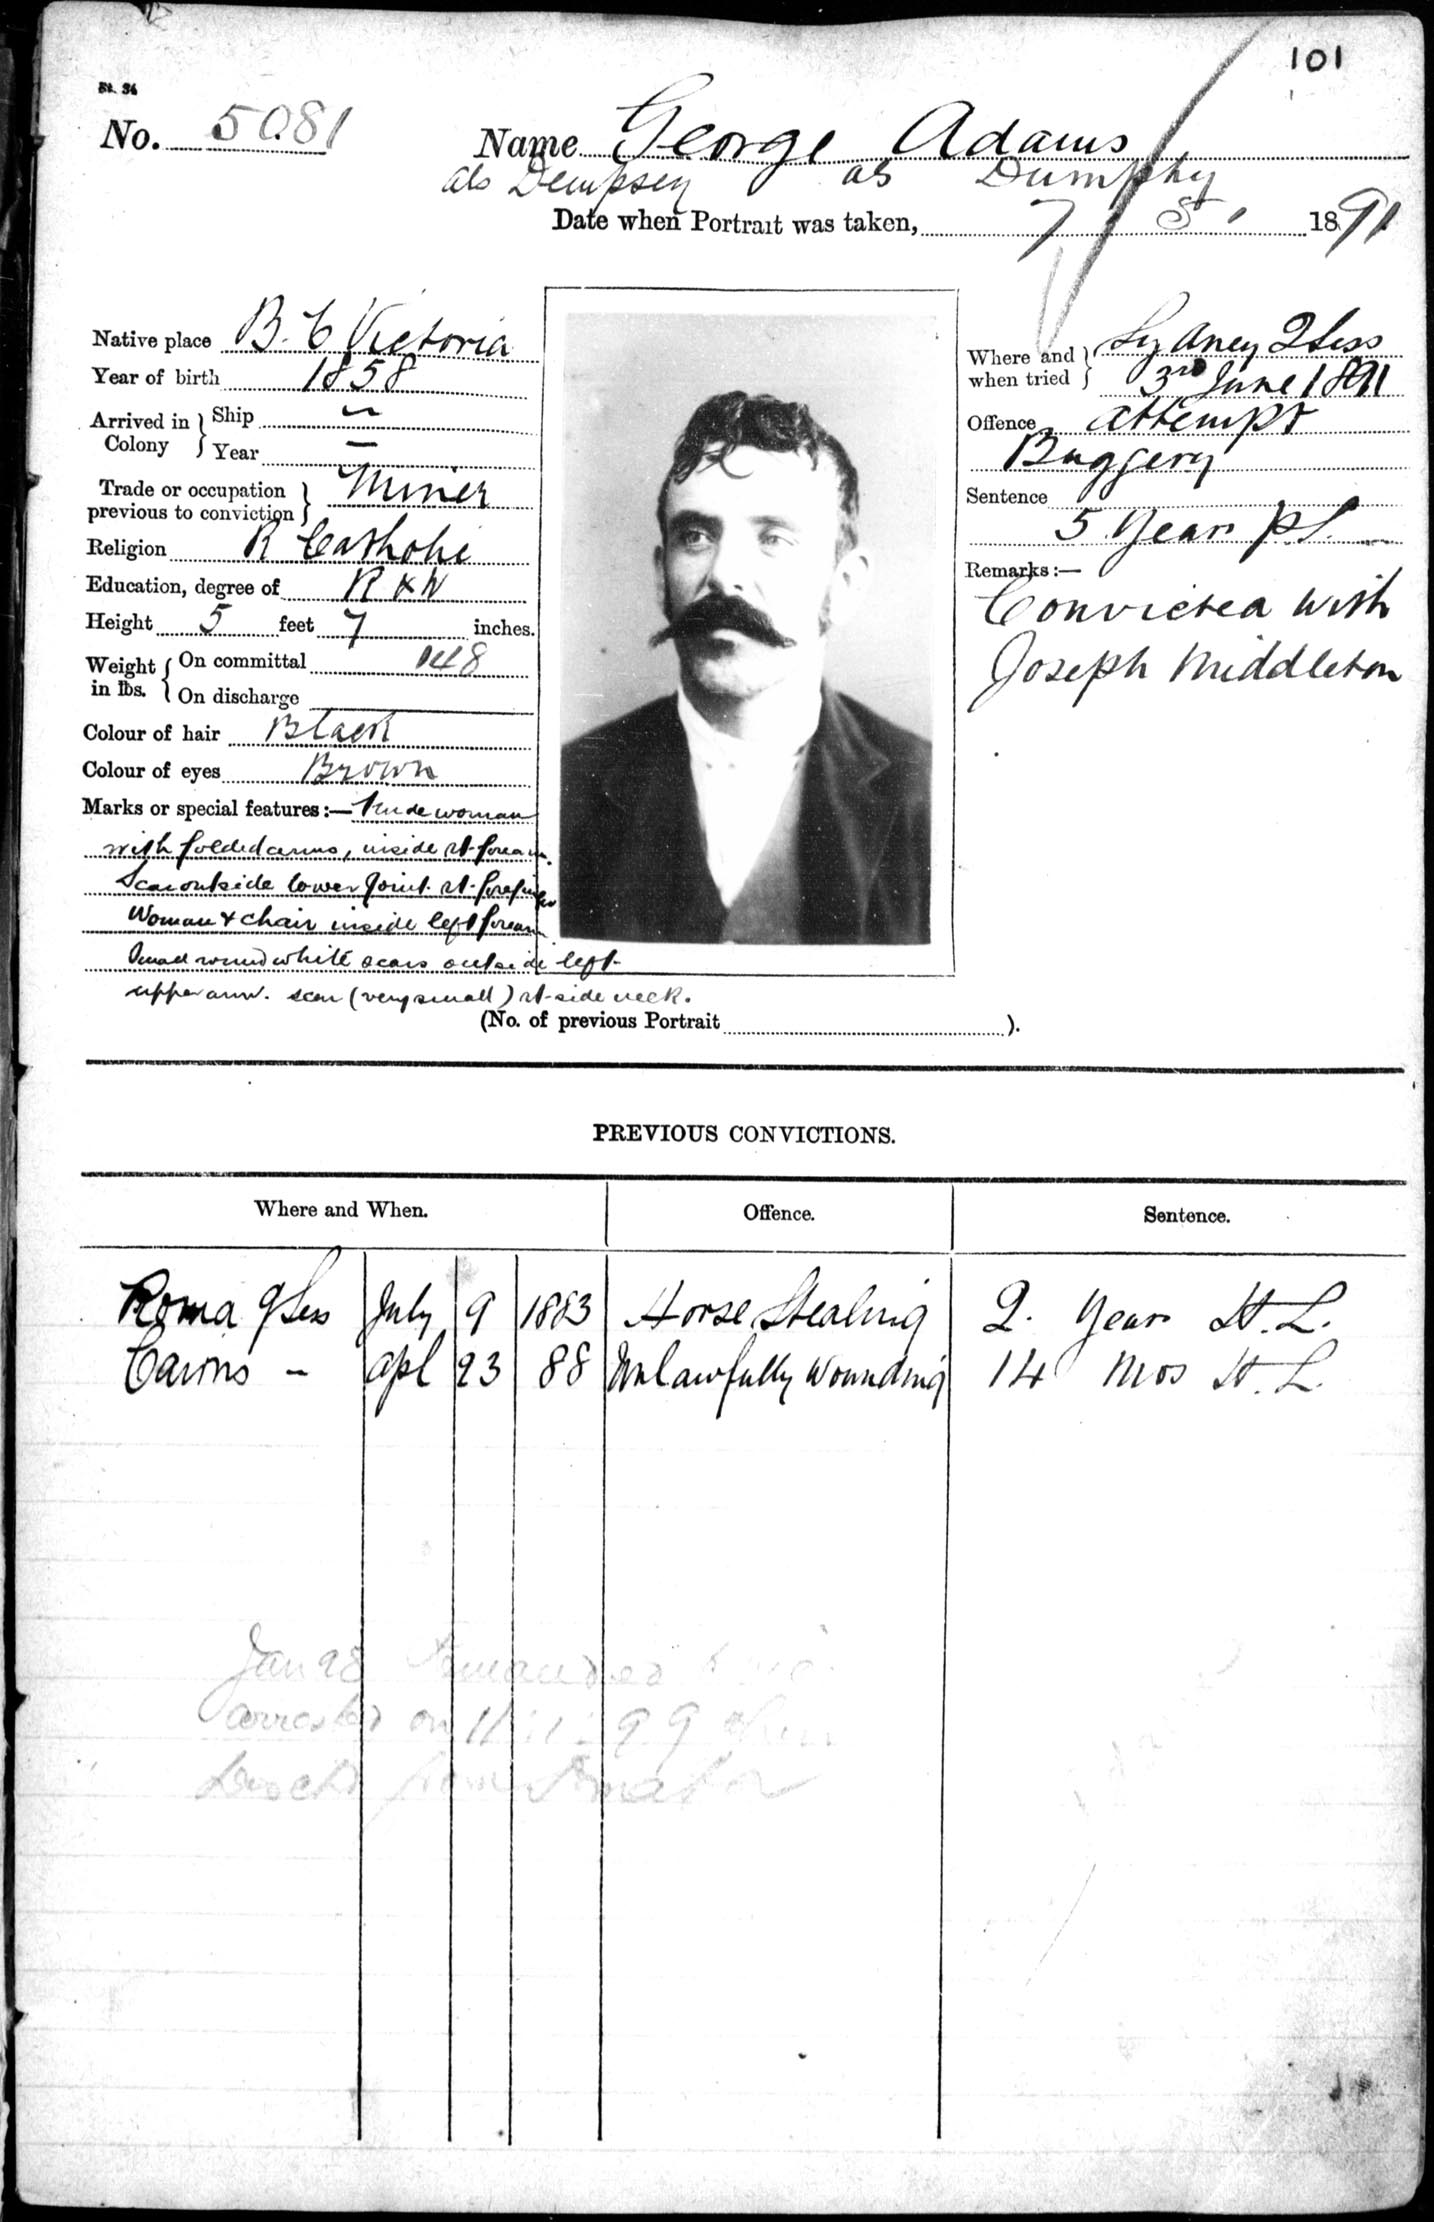 101
No. 5081
Name George Adams
als Dempsey as Dumphy
Date when Portrait was taken, 7 5 1891
Native place B. C Victoria
Year of birth 1858
Arrived in Colony } Ship —
Year —
Trade or occupation previous to conviction } Miner
Religion R Catholic
Education, degree of R & W
Height 5 feet 7 inches.
Weight in lbs. { On committal 148
On discharge
Colour of hair Black
Colour of eyes Brown
Marks or special features:— Nude woman
with folded arms, inside rt forearm.
Scar outside lower joint rt forefinger
Woman & chair inside left forearm
Small round white scars outside left
upper arm. scar (very small) rt side neck.
(No. of previous Portrait ).
Where and when tried } Sydney QSess
3rd June 1891
Offence attempt
Buggery
Sentence
5 Years P.S.
Remarks:—
Convicted with
Joseph Middleton
PREVIOUS CONVICTIONS.
Where and When. Offence. Sentence.
Roma QSess July 9 1883 Horse Stealing 2. Years H.L.
Cairns — apl 23 88 Unlawfully Wounding 14 Mos H.L.
Jan 98 Remanded
arrested on 11.11.99
from